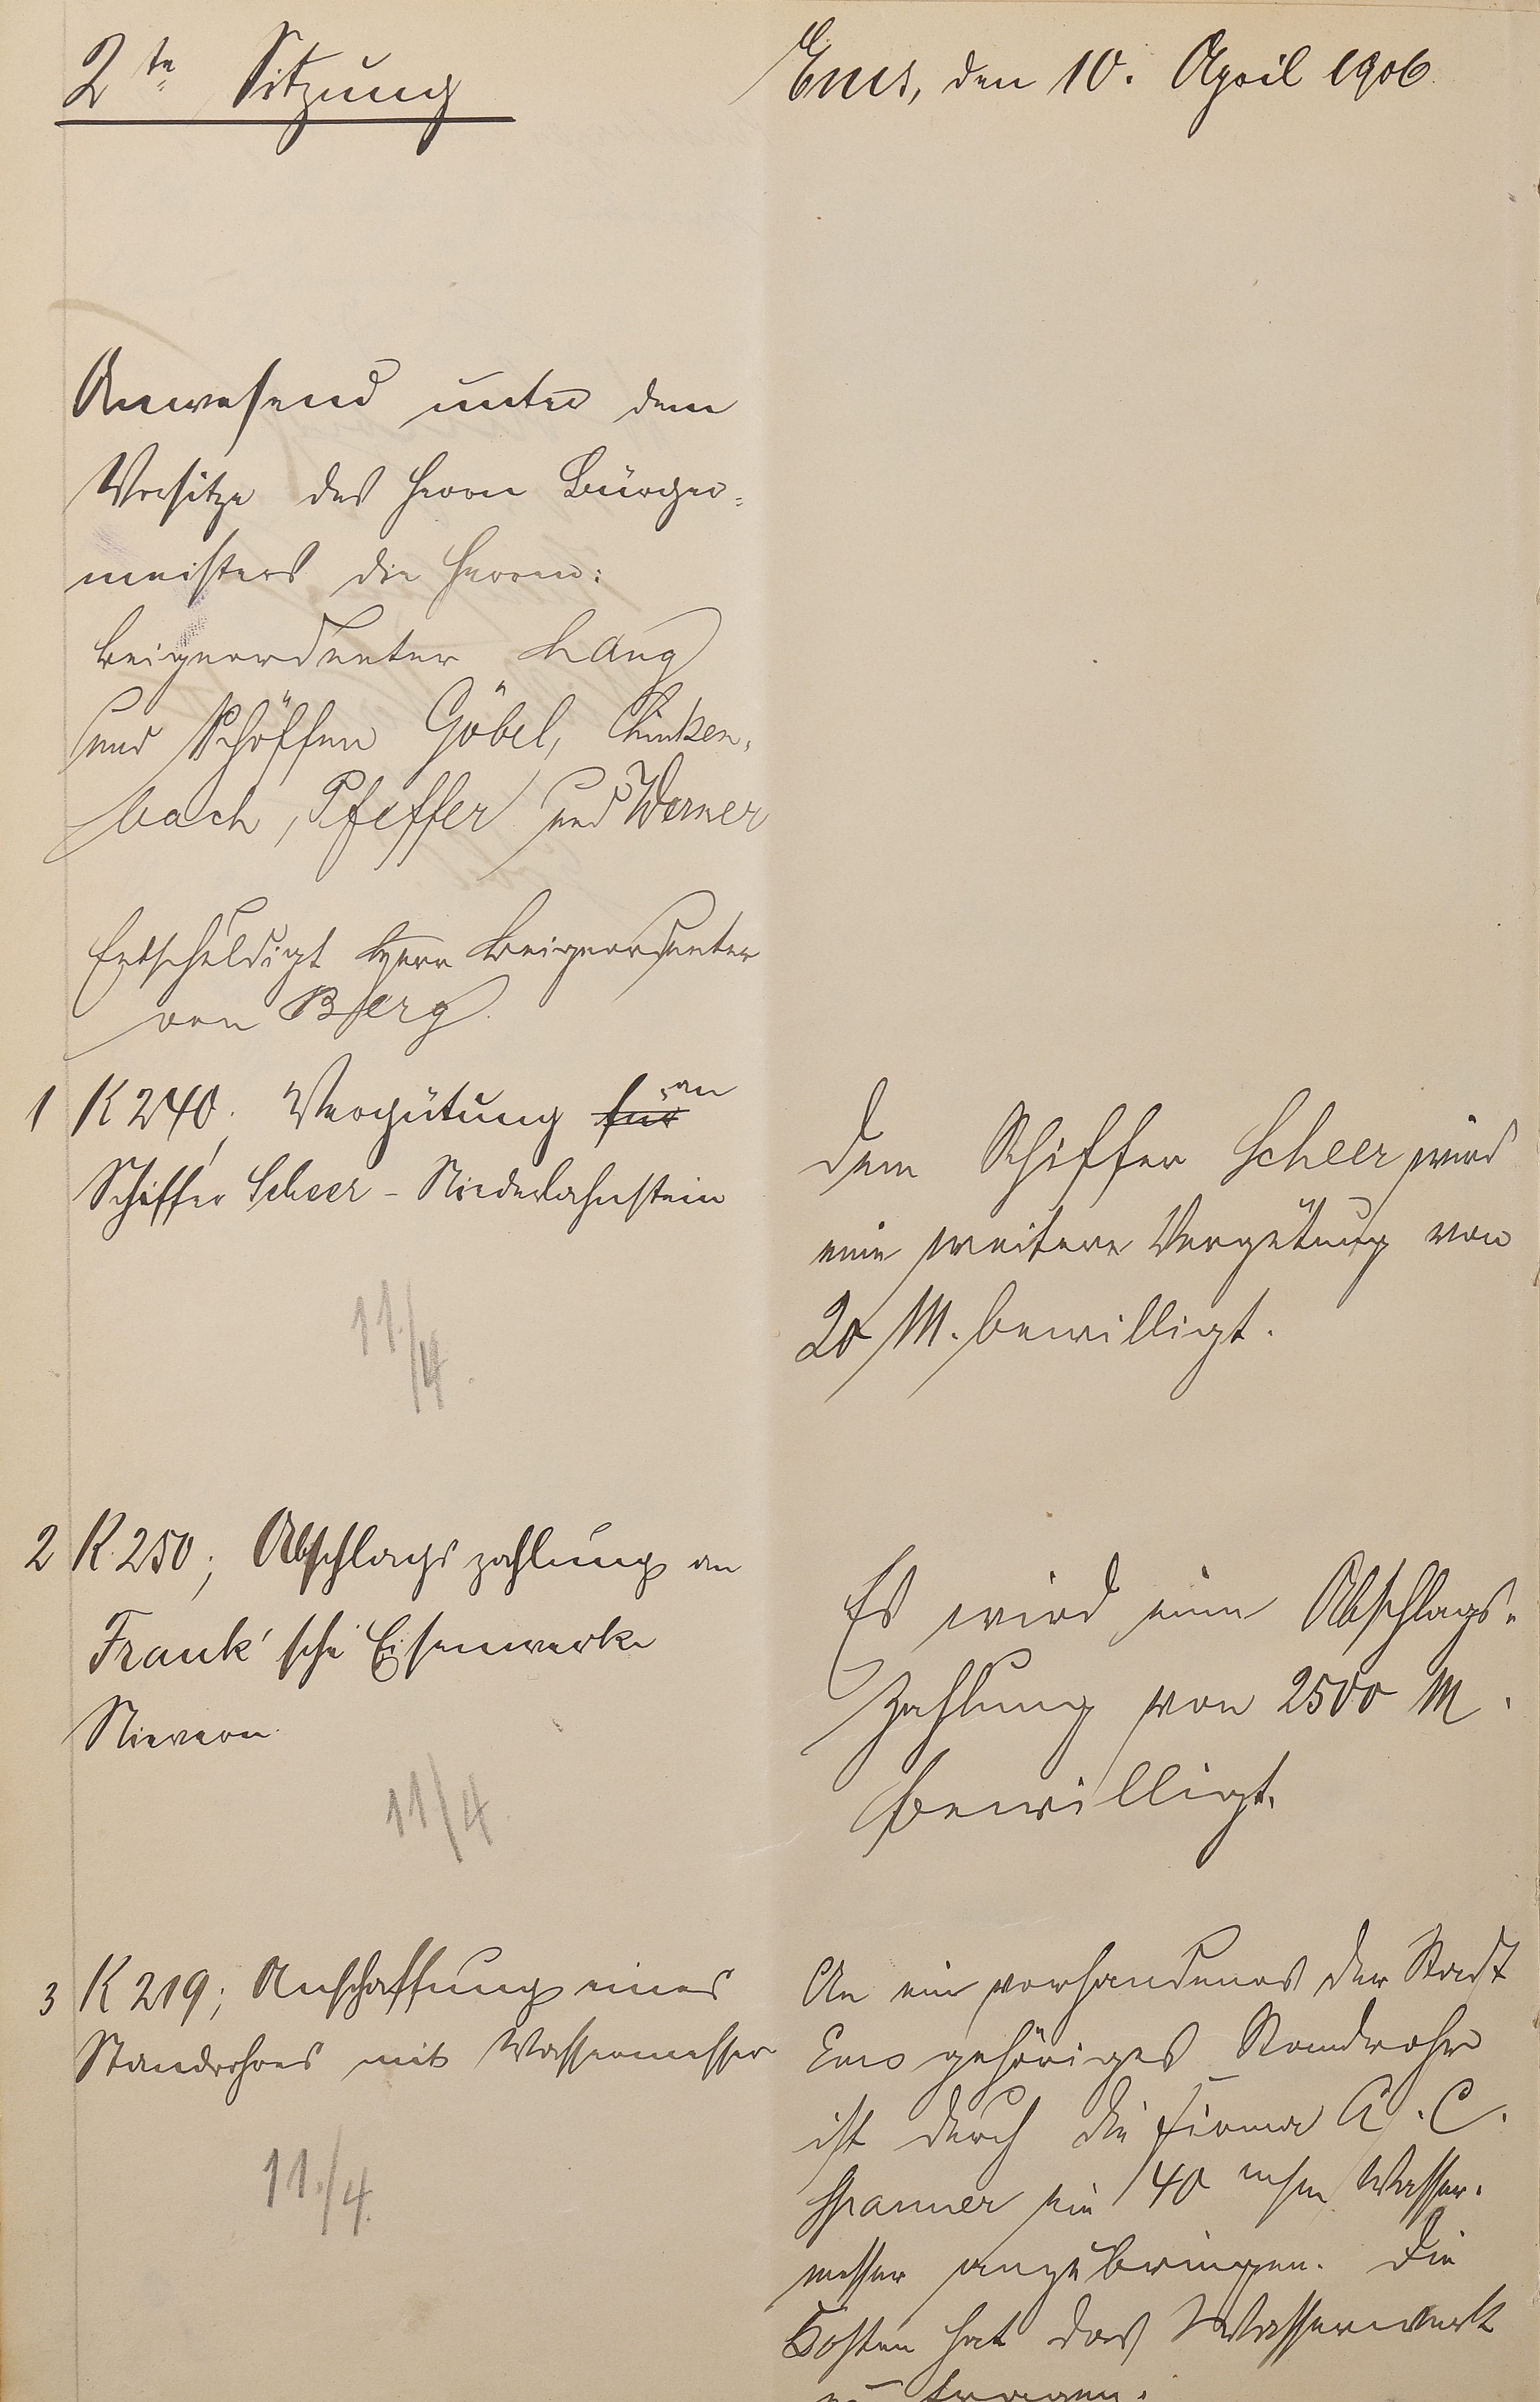 2te Sitzung
Ems, den 10. April 1906.
Anwesend unter dem
Vorsitze des Herrn Bürger=
meisters die Herren:
Beigeordneter Lang
und Schöffen Göbel, Linken=
bach, Pfeffer und Werner
Entschuldigt Herr Beigeordneter
von Berg.
1 K 240; Vergütung für an
Schiffer Scheer - Niederlahnstein
11./4.
Dem Schiffer Scheer wird
eine weitere Vergütung von
20 M. bewilligt.
2 K. 250; Abschlagszahlung an
Frank'sche Eisenwerke
Nievern.
11/4.
Es wird eine Abschlags=
zahlung von 2500 M.
bewilligt.
3 K 219; Anschaffung eines
Standrohres mit Wassermesser
11./4.
An ein vorhandenes der Stadt
Ems gehöriges Standrohr
ist durch die Firma A. C.
Spanner ein 40 mm Wasser=
messer anzubringen. Die
Kosten hat das Wasserwerk
zu tragen.